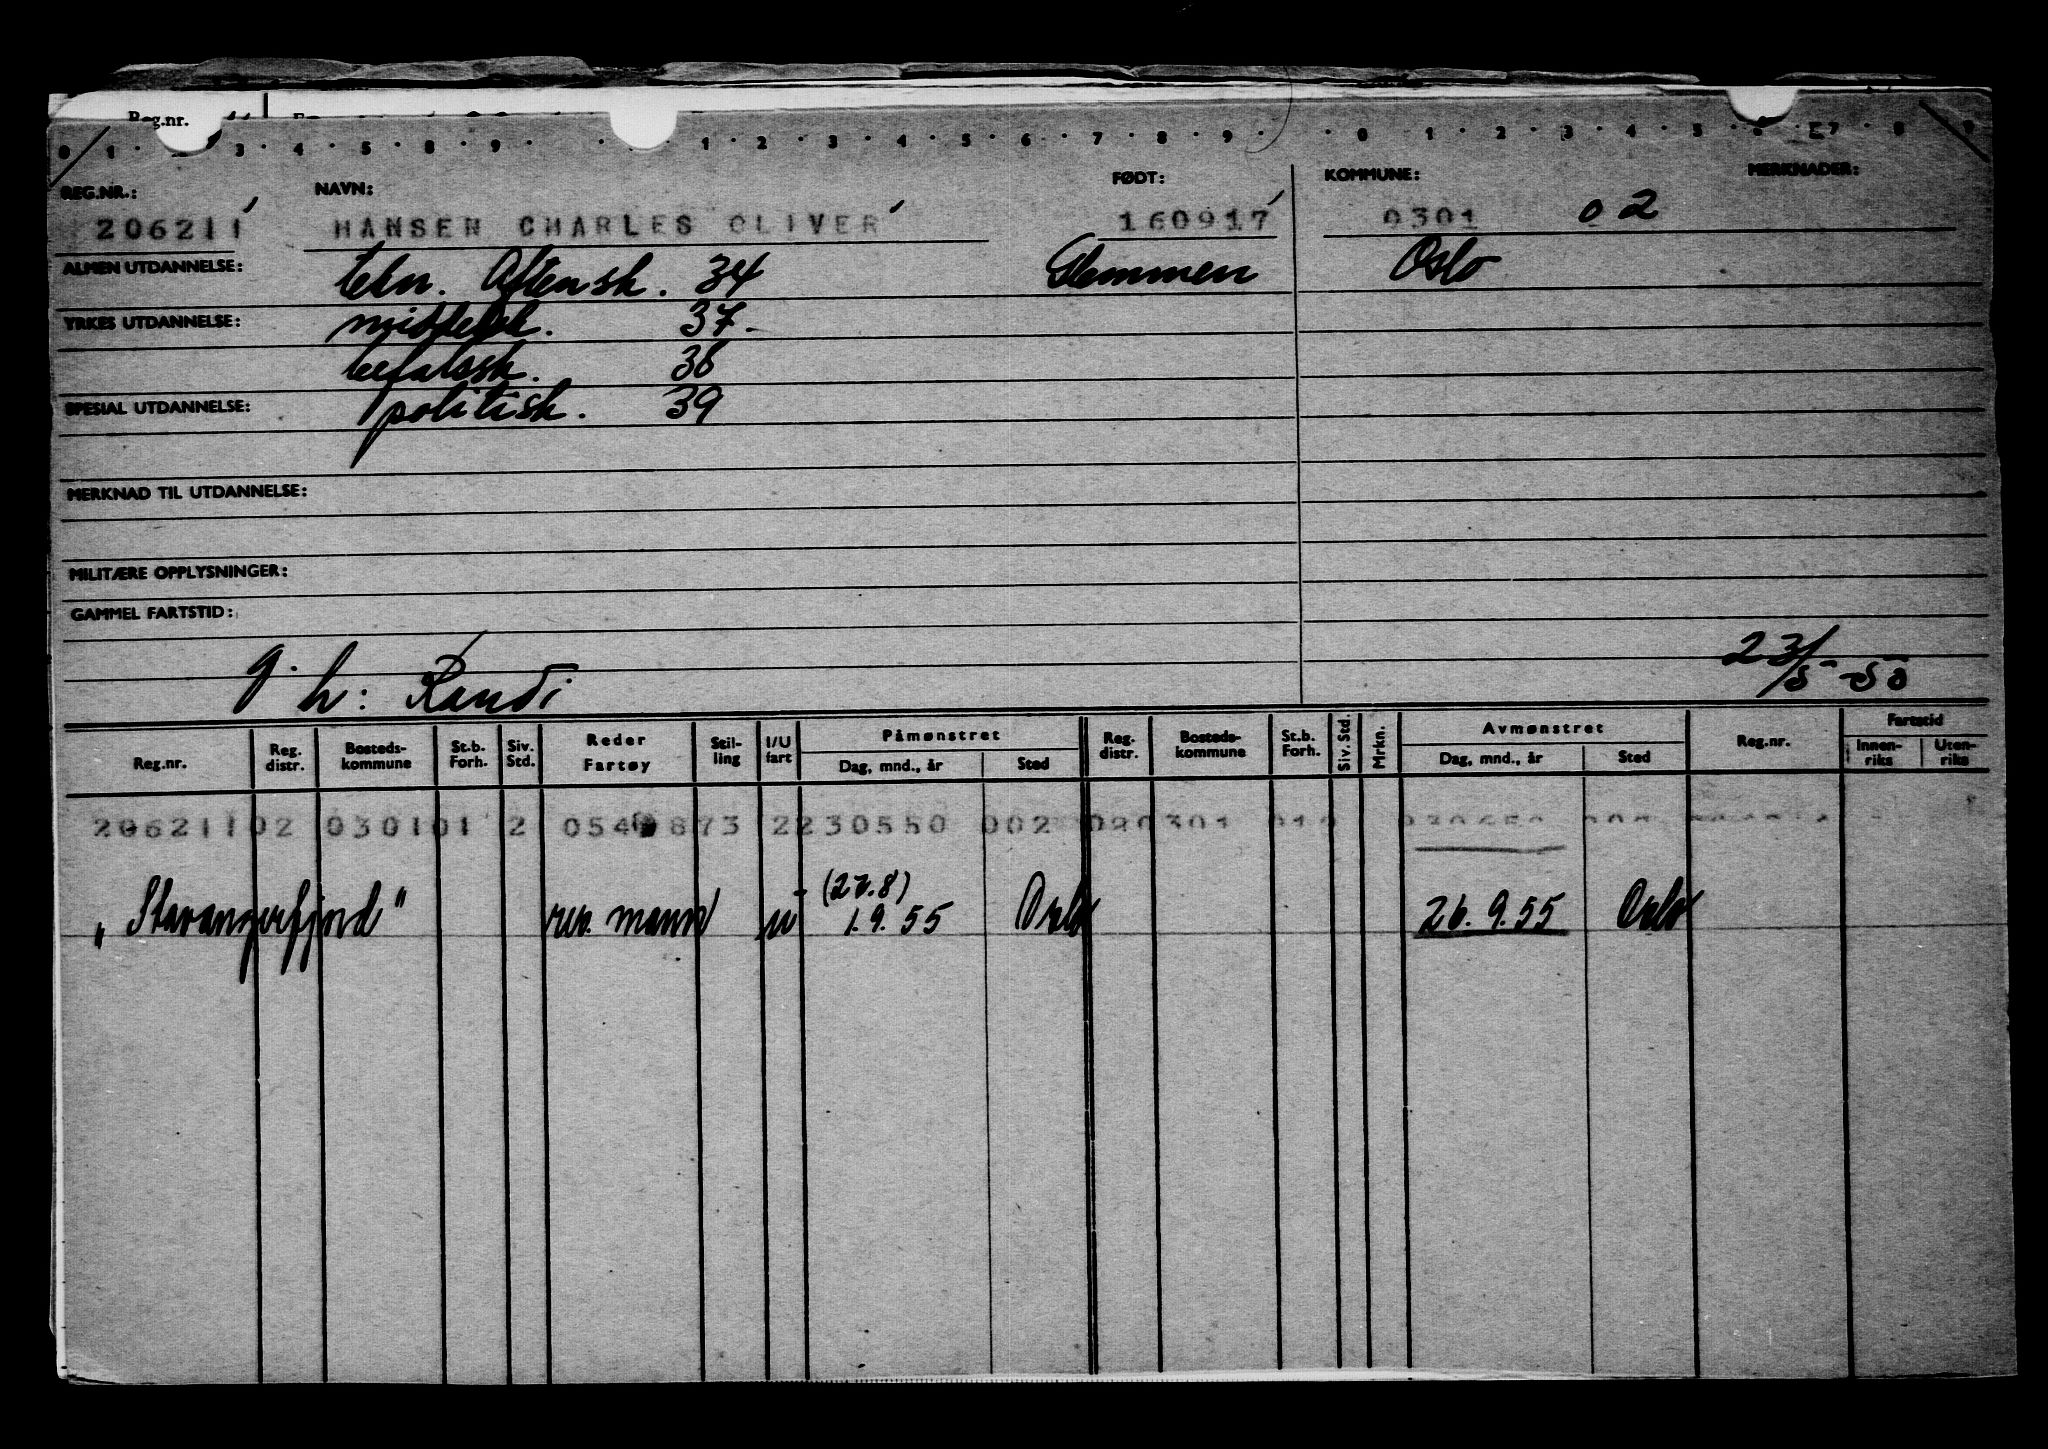 Reg.nr.
0 1 3 4 5 8 9 1 2 3 4 5 6 7 8 9 0 1 2 3 4 5 6 7 8 9
REG.NR.: NAVN: FØDT: KOMMUNE: MERKNADER:
206211 HANSEN CHARLES OLIVER 160917 0301 02
ALMEN UTDANNELSE: tekn. Aftensk. 34 Glemmen Oslo
YRKES UTDANNELSE: middelsk. 37.
befalssk. 38
SPESIAL UTDANNELSE: politisk. 39
MERKNAD TIL UTDANNELSE:
MILITÆRE OPPLYSNINGER:
GAMMEL FARTSTID:
g. h: Randi 23/5-50
Reg.nr. Reg. distr. Bosteds-kommune St.b. Forh. Siv. Std. Reder Fartøy Stil-ling I/U fart Påmønstret Dag, mnd., år Sted Reg. distr. Bosteds-kommune St.b. Forh. Siv. Std. Mrkn. Avmønstret Dag, mnd., år Sted Reg.nr. Fartstid Innen-riks Uten-riks
206211 02 0301 01 2 873 2 230550 002
(27.8)
"Stavangerfjord" rev. mann u 1.9.55 Oslo 26.9.55 Oslo